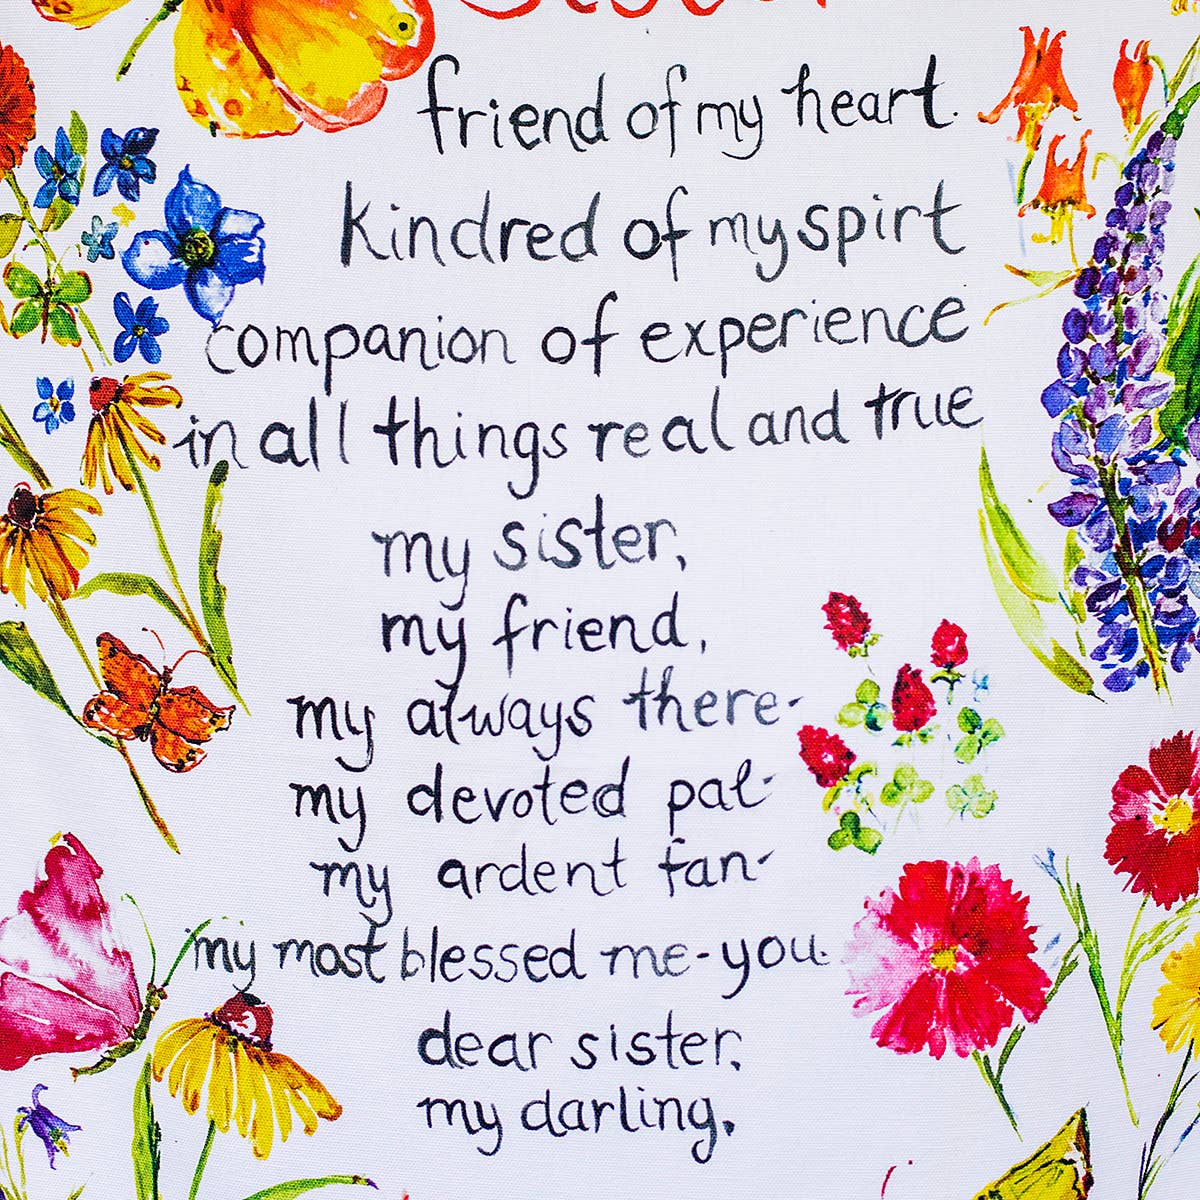 Sister
friend of my heart.
kindred of my spirt
companion of experience
in all things real and true
my sister,
my friend,
my always there-
my devoted pal-
my ardent fan-
my most blessed me-you.
dear sister,
my darling.